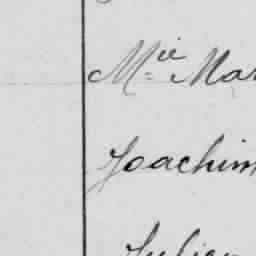 M.ie Mar
Joachim
Julien